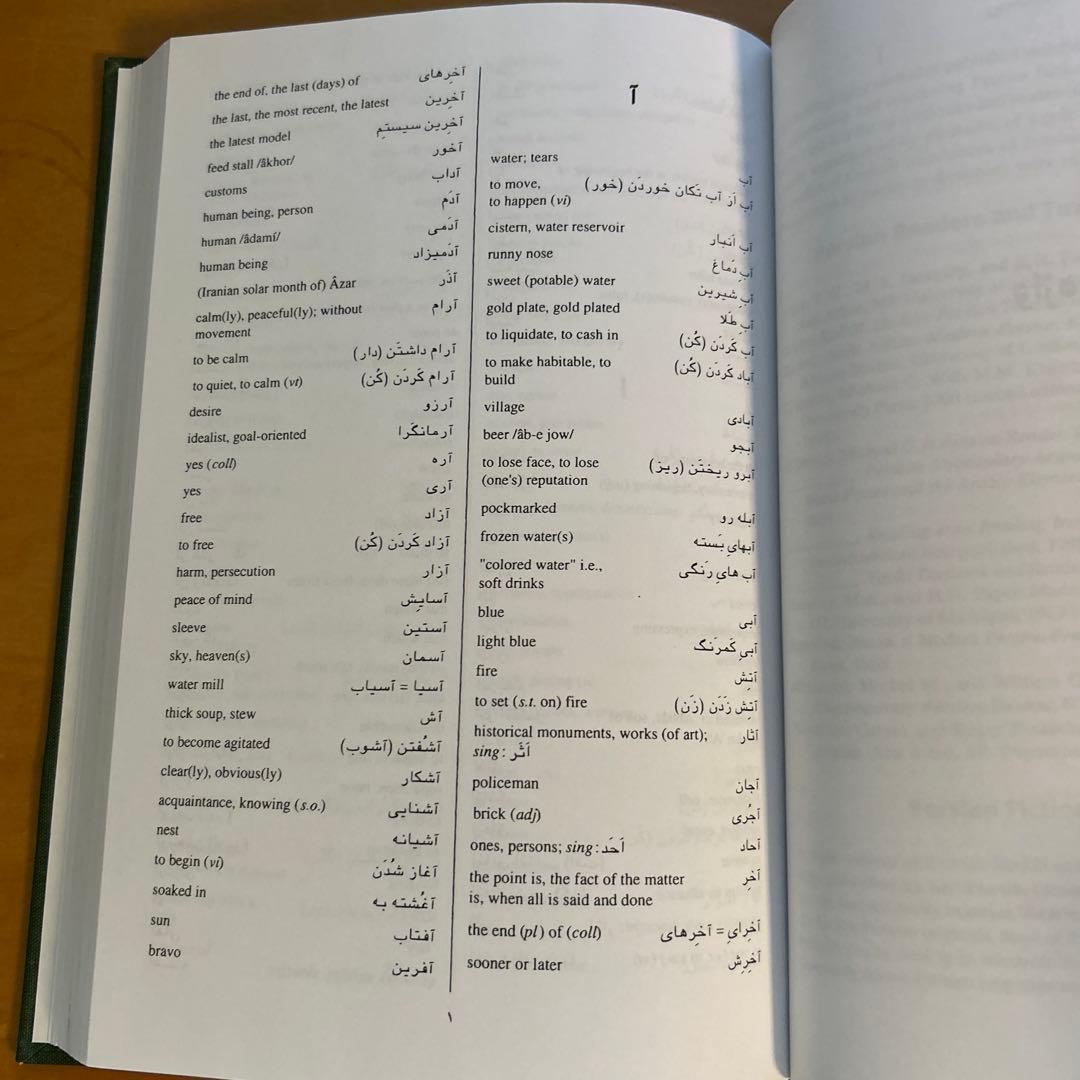 آ
water; tears آب
to move, آب اَز آب تَکان خوردَن (خور)
to happen (vi)
cistern, water reservoir آب اَنبار
runny nose آبِ دَماغ
sweet (potable) water آبِ شیرین
gold plate, gold plated آبِ طَلا
to liquidate, to cash in آب کَردَن (کُن)
to make habitable, to آباد کَردَن (کُن)
build
village آبادی
beer /âb-e jow/ آبجو
to lose face, to lose آبرو ریختَن (ریز)
(one's) reputation
pockmarked آبله رو
frozen water(s) آبهایِ بَسته
"colored water" i.e., آب هایِ رَنگی
soft drinks
blue آبی
light blue آبیِ کَمرَنگ
fire آتِش
to set (s.t. on) fire آتِش زَدَن (زَن)
historical monuments, works (of art); آثار
sing: اَثَر
policeman آجان
brick (adj) آجُری
ones, persons; sing: اَحَد آحاد
the point is, the fact of the matter آخَرِ
is, when all is said and done
the end (pl) of (coll) آخِرایِ = آخِرهای
sooner or later آخِرِش
the end of, the last (days) of آخِرهای
the last, the most recent, the latest آخَرین
the latest model آخَرین سیستِمِ
feed stall /âkhor/ آخور
customs آداب
human being, person آدَم
human /âdamí/ آدَمی
human being آدَمیزاد
(Iranian solar month of) Âzar آذَر
calm(ly), peaceful(ly); without آرام
movement
to be calm آرام داشتَن (دار)
to quiet, to calm (vt) آرام کَردَن (کُن)
desire آرزو
idealist, goal-oriented آرمانگَرا
yes (coll) آره
yes آری
free آزاد
to free آزاد کَردَن (کُن)
harm, persecution آزار
peace of mind آسایِش
sleeve آستین
sky, heaven(s) آسمان
water mill آسیا = آسیاب
thick soup, stew آش
to become agitated آشُفتَن (آشوب)
clear(ly), obvious(ly) آشکار
acquaintance, knowing (s.o.) آشنایی
nest آشیانه
to begin (vi) آغاز شُدَن
soaked in آغُشته به
sun آفتاب
bravo آفرین
۱